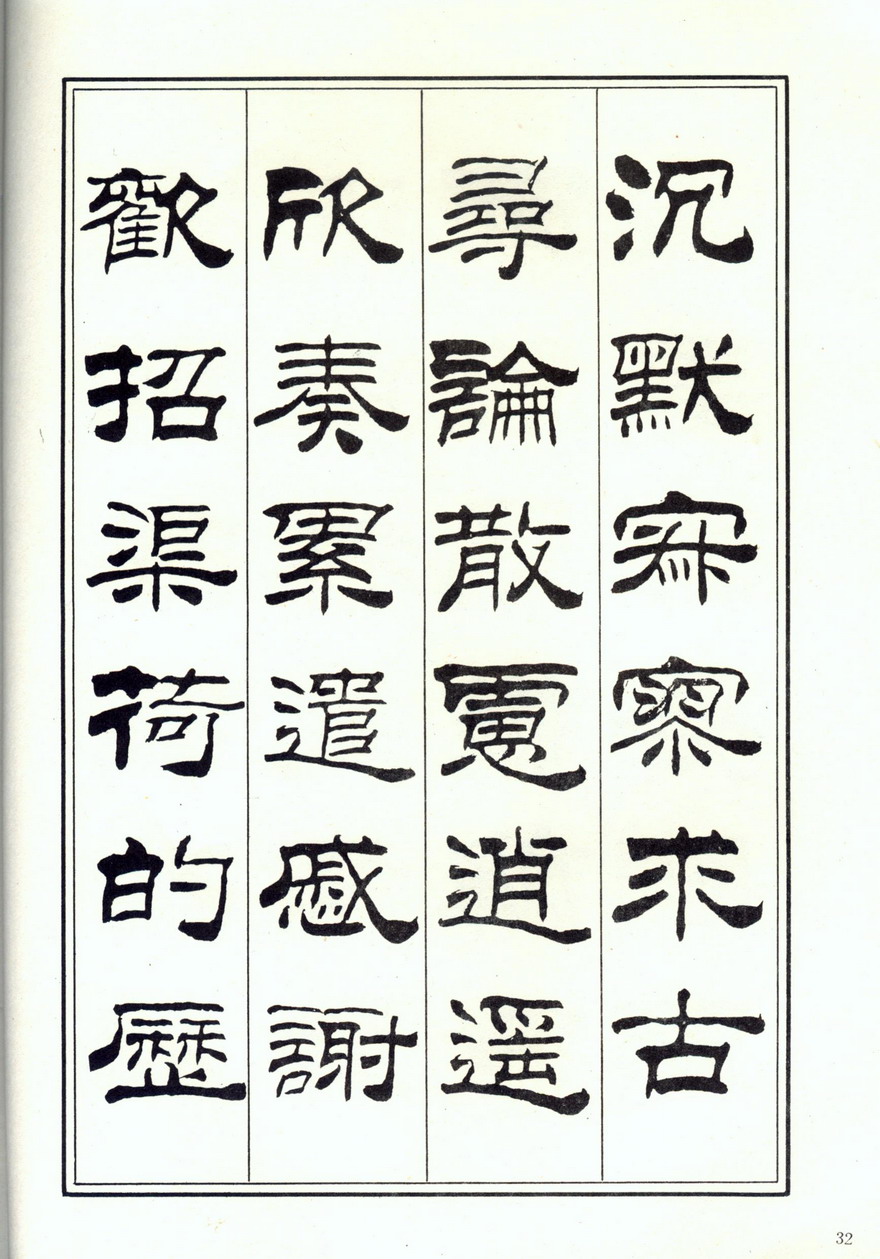 沉默寂寥求古
尋論散慮逍遙
欣奏累遣慼謝
歡招渠荷的歷
32